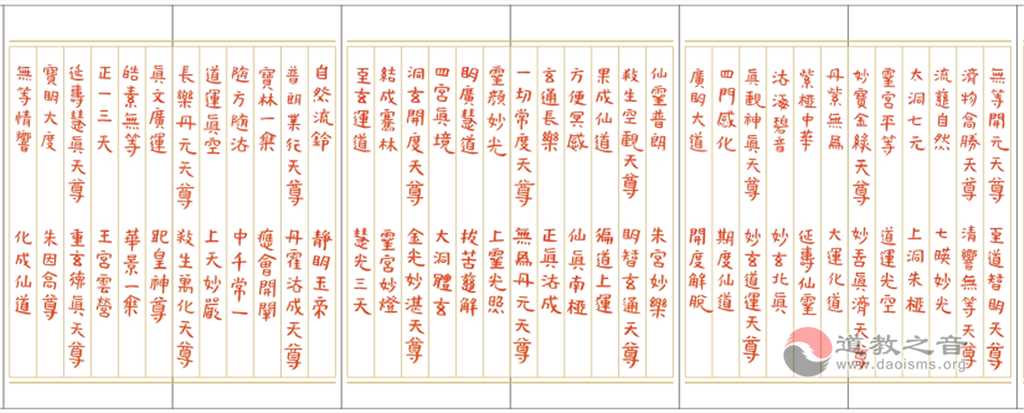 無等開元天尊 至道智明天尊
濟物高勝天尊 清響無等天尊
流 自然 七暎妙光
大洞七元 上洞朱極
靈宮平等 道運光空
妙寶金 天尊 妙 眞濟天尊
丹紫無為 大運化道
紫極中華 延壽仙靈
沽 碧音 妙玄北眞
眞觀神眞天尊 妙玄道運天尊
四門感化 期度仙道
廣明大道 開度解脫
仙靈普朗 朱宮妙樂
殺生空觀天尊 明智玄通天尊
果成仙道 徧道上運
方便冥感 仙眞南極
玄通長樂 正眞沽成
一切常度天尊 無為丹元天尊
靈顏妙光 上靈光照
明廣慧道 拔苦 解
四宮眞境 大洞體玄
洞玄開度天尊 金光妙湛天尊
結成騫林 靈宮妙燈
至玄運道 慧光三天
自然流鈴 靜明玉帝
普朗業行天尊 丹霍沽成天尊
寶林一乘 應會開闡
随方随沽 中千常一
道運眞空 上天妙嚴
長樂丹元天尊 殺生萬化天尊
眞文廣運 皇神尊
皓素無等 華景一乘
正一三天 王宮雲營
延壽慧眞天尊 重玄德眞天尊
寶明大度 朱因高尊
無等情響 化成仙道
道教之音
www.daoisms.org